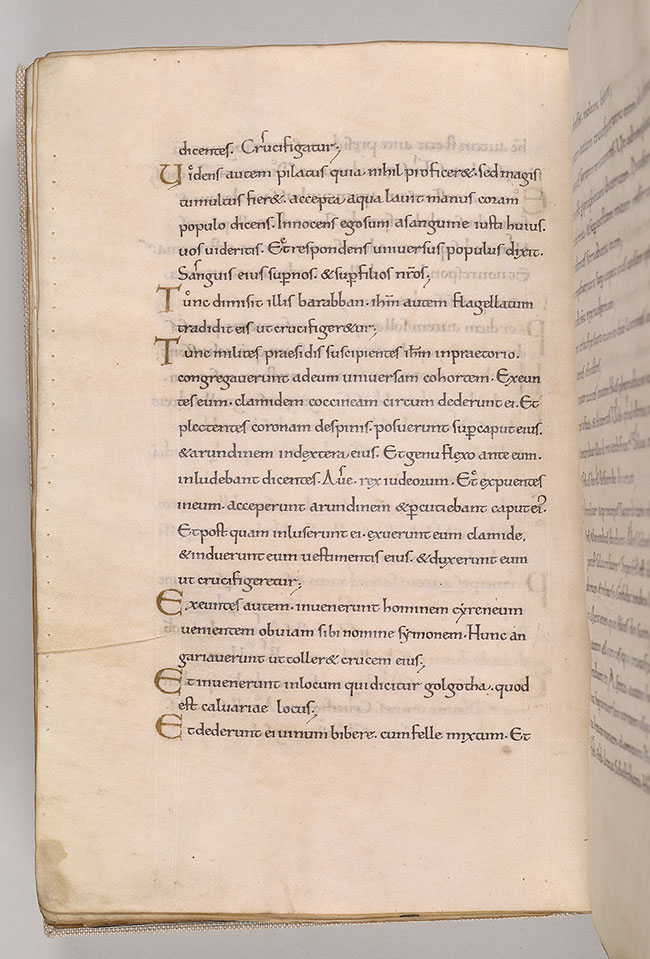 dicentes. Crucifigatur;
Uidens autem pilatus quia nihil proficer&. sed magis
tumultus fier&. accepta aqua lauit manus coram
populo dicens. Innocens egosum asanguine iusti huius.
uos uideritis. Et respondens uniuersus populus dixit.
Sanguis eius sup nos. & sup filios nr̄os;
Tunc dimisit illis barabban. ihm̄ autem flagellatum
tradidit eis ut crucifiger&ur;
Tunc milites praesidis suscipientes ihm̄ inpraetorio.
congregauerunt adeum uniuersam cohortem. Exeun
tes eum. clamidem coccineam circum dederunt ei. Et
plectentes coronam despinis. posuerunt sup caput eius.
& arundinem indextera eius. Et genu flexo ante eum.
inludebant dicentes. Aue. rex iudeorum. Et expuentes
ineum. acceperunt arundinem & pcutiebant caput ei'.
Et post quam inluserunt ei. exuerunt eum clamide.
& induerunt eum uestimentis eius. & duxerunt eum
ut crucifigeretur;
Exeuntes autem. inuenerunt hominem cyreneum
uenientem obuiam sibi nomine symonem. Hunc an
gariauerunt ut toller& crucem eius;
Et inuenerunt inlocum qui dicitur golgotha. quod
est caluariae locus;
Et dederunt ei uinum bibere. cum felle mixtum. Et